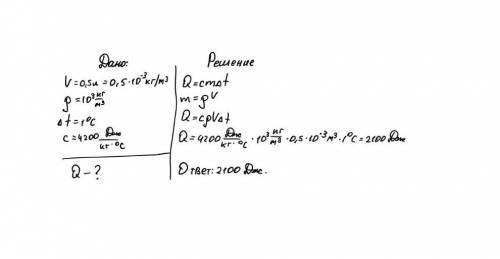 Дано:
V=0,5л=0,5·10⁻³кг/м³
ρ=10³ кг/м³
Δt=1°C
c=4200 Дж/кг·°C
Q-?
Решение
Q=cmΔt
m=ρV
Q=cρVΔt
Q=4200 Дж/кг·°C ·10³ кг/м³ ·0,5·10⁻³м³·1°C=2100 Дж
Ответ: 2100 Дж.